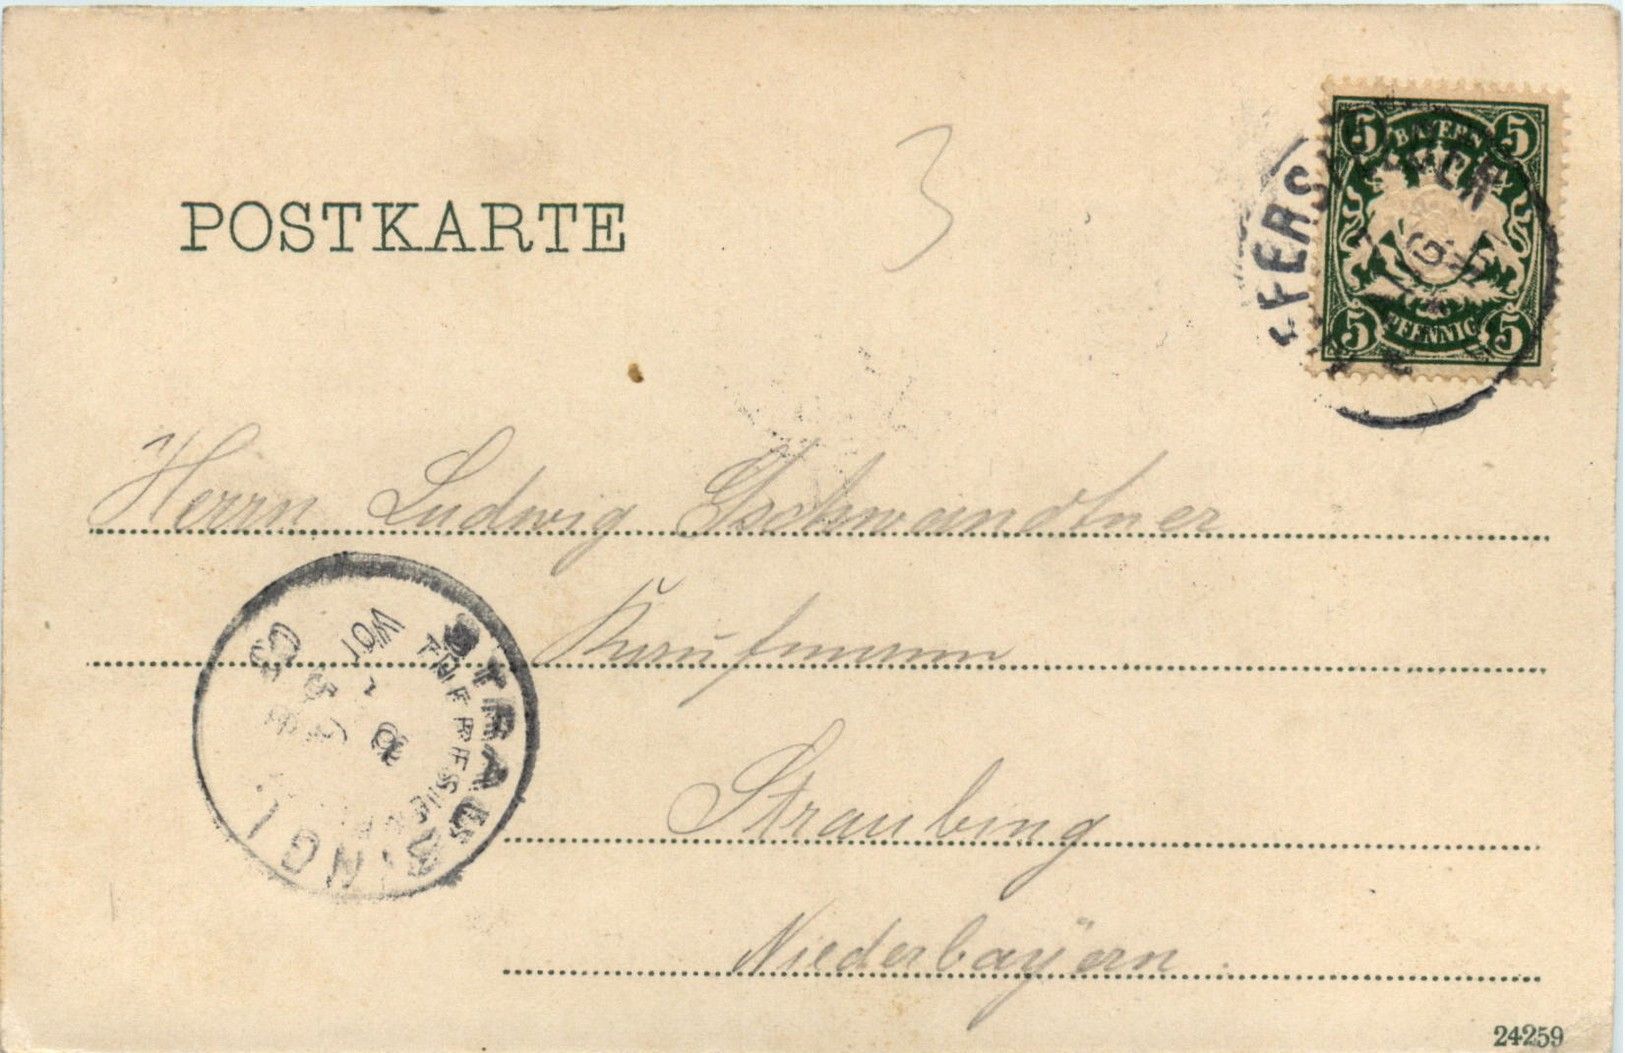 POSTKARTE
3
5 BAYERN 5
5 PFENNIG 5
Herrn Ludwig Gschwandtner
Kaufmann
Straubing
Niederbayern.
STRAUBING I
24259